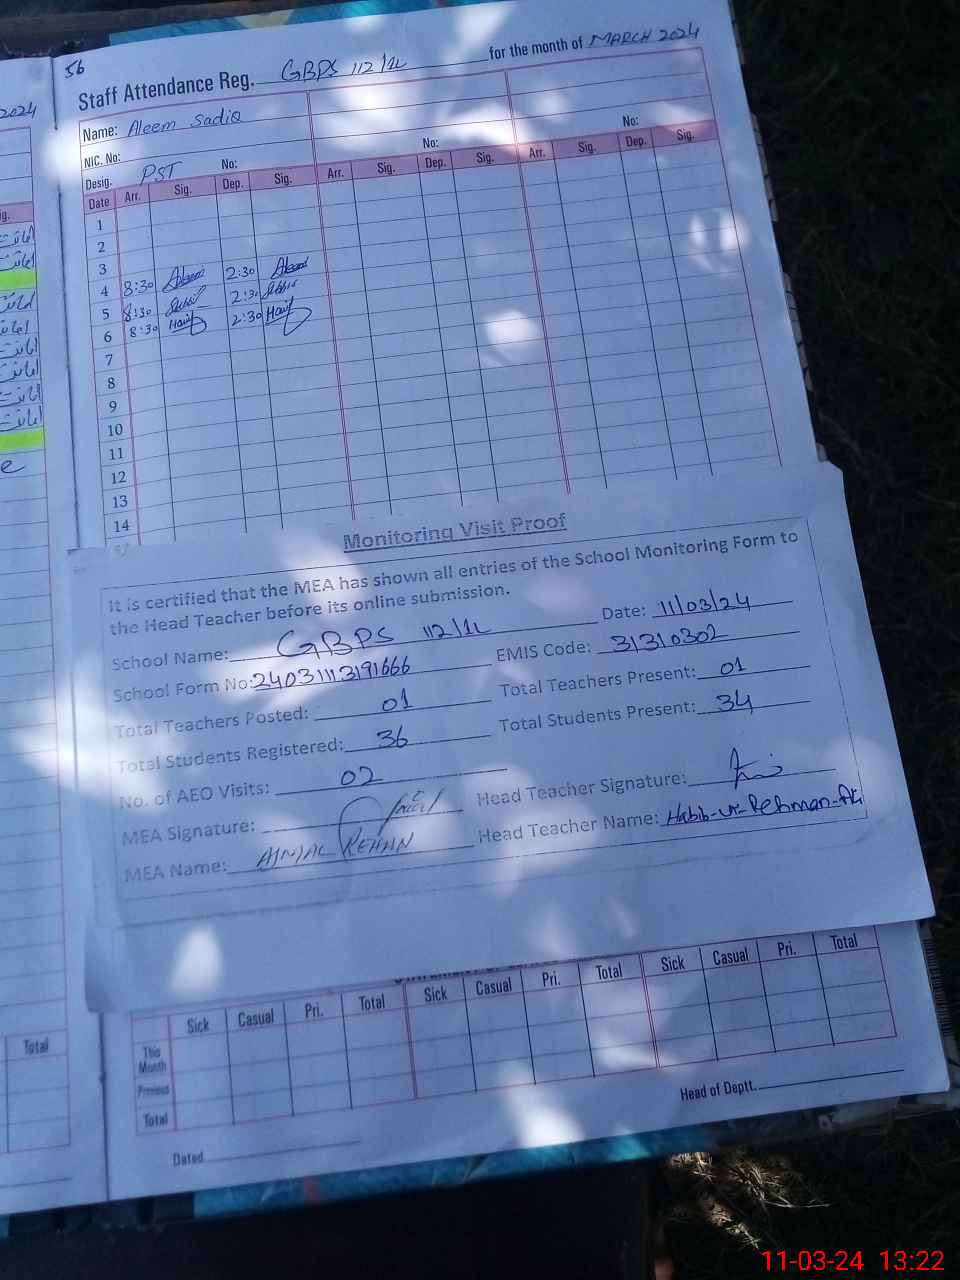 56
2024
Staff Attendance Reg. GBPS 112/1L for the month of MARCH 2024
Name: Aleem Sadiq
NIC. No: No: No:
Desig. PST No:
Date Arr. Sig. Dep. Sig. Arr. Sig. Dep. Sig. Arr. Sig. Dep. Sig.
1
2
3
4 8:30 Aleem 2:30 Aleem
5 8:30 2:30
6 8:30 Hanif 2:30 Hanif
7
8
9
10
11
12
13
14
Monitoring Visit Proof
It is certified that the MEA has shown all entries of the School Monitoring Form to
the Head Teacher before its online submission.
School Name: GBPS 112/1L Date: 11/03/24
School Form No: 24031113191666 EMIS Code: 31310302
Total Teachers Posted: 01 Total Teachers Present: 01
Total Students Registered: 36 Total Students Present: 34
No. of AEO Visits: 02
MEA Signature: Head Teacher Signature:
MEA Name: AJMAL REHAN Head Teacher Name: Habib-ur-Rehman
Sick Casual Pri. Total Sick Casual Pri. Total Sick Casual Pri. Total
This Month
Previous
Total
Total
Head of Deptt.
Dated
11-03-24 13:22